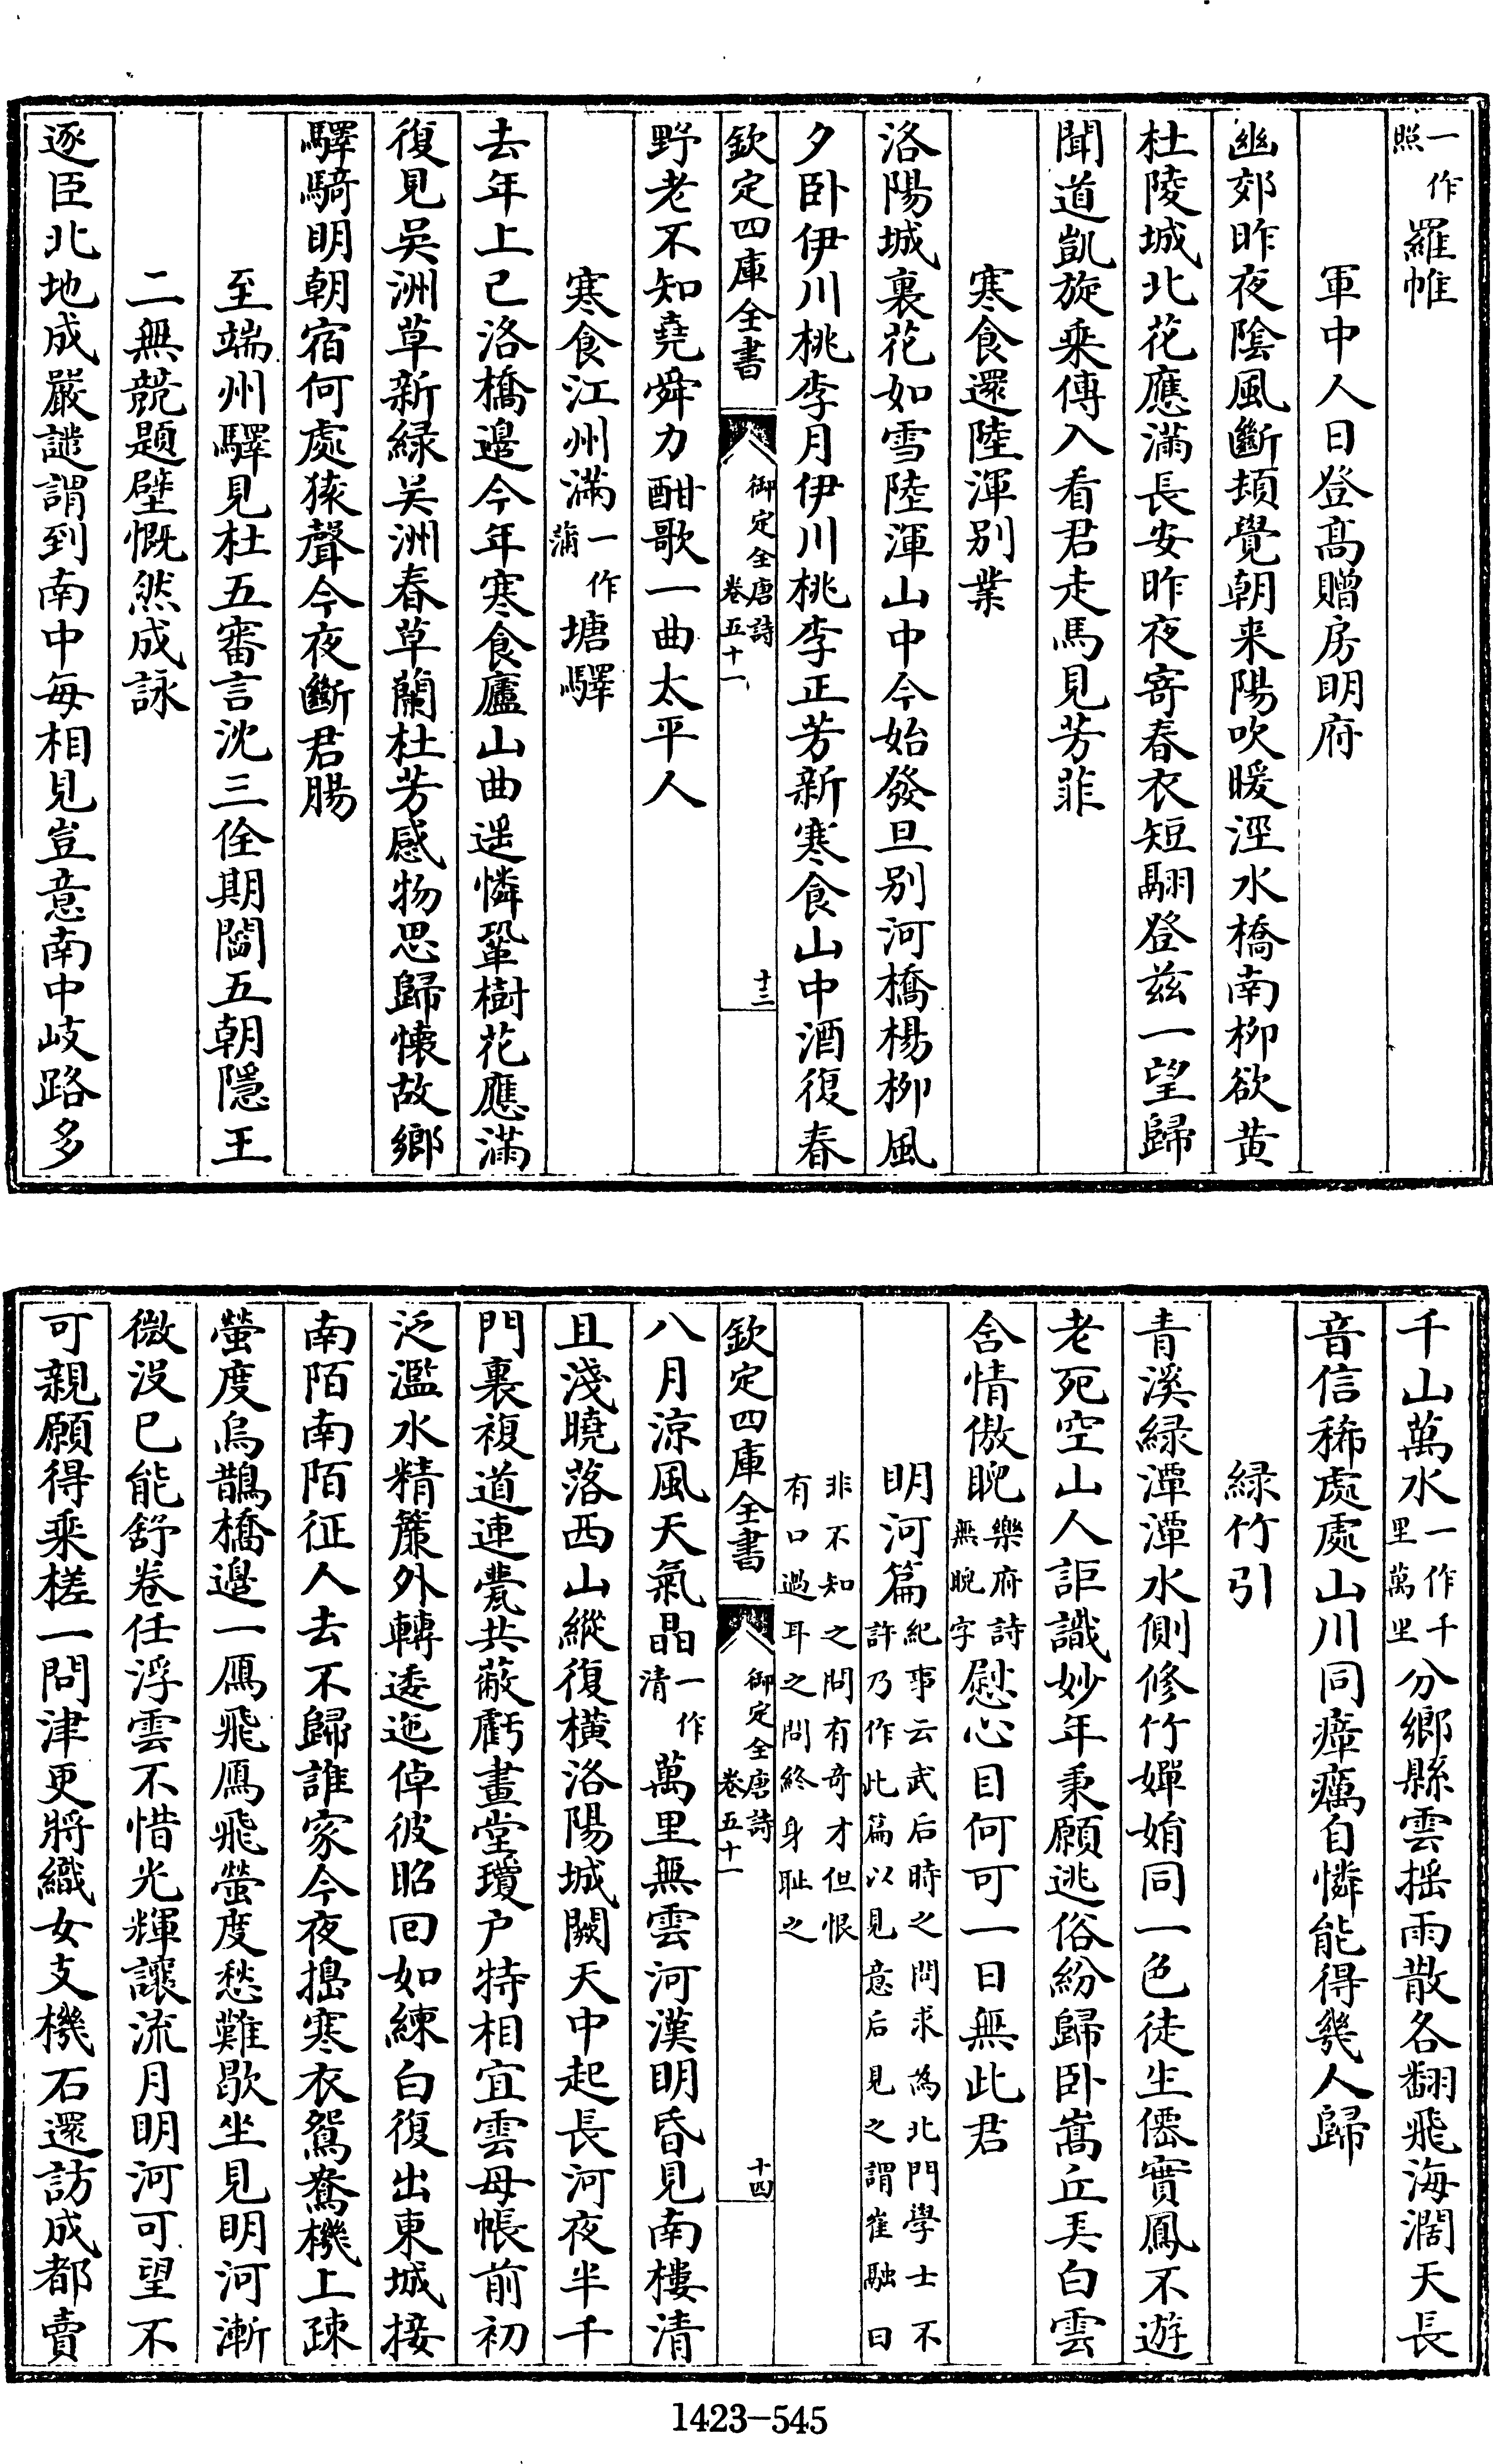 一作照羅帷
軍中人日登髙贈房明府
幽郊昨夜陰風斷頓覺朝来陽吹暖涇水橋南栁欲黄
杜陵城北花應滿長安昨夜寄春衣短翮登兹一望歸
聞道凱旋乗傳入看君走馬見芳菲
寒食還陸渾别業
洛陽城裏花如雪陸渾山中今始發旦别河橋楊栁風
夕卧伊川桃李月伊川桃李正芳新寒食山中酒復春
欽定四庫全書 御定全唐詩 卷五十一 十三
野老不知堯舜力酣歌一曲太平人
寒食江州滿一作蒲塘驛
去年上巳洛橋邉今年寒食廬山曲遥憐鞏樹花應滿
復見吳洲草新緑吳洲春草蘭杜芳感物思歸懐故鄉
驛騎明朝宿何處猿聲今夜斷君腸
至端州驛見杜五審言沈三佺期閻五朝隱王
二無競題壁慨然成詠
逐臣北地成嚴譴謂到南中每相見豈意南中岐路多
千山萬水一作千里萬里分鄉縣雲揺雨散各翻飛海濶天長
音信稀處處山川同瘴癘自憐能得幾人歸
緑竹引
青溪緑潭潭水側修竹嬋娟同一色徒生僊實鳳不遊
老死空山人詎識妙年秉願逃俗紛歸卧嵩丘弄白雲
含情傲睨樂府詩無睨字慰心目何可一日無此君
明河篇紀事云武后時之問求為北門學士不許乃作此篇以見意后見之謂崔融曰
非不知之問有竒才但恨有口過耳之問終身耻之
欽定四庫全書 御定全唐詩 卷五十一 十四
八月涼風天氣晶一作清萬里無雲河漢明昏見南樓清
且淺曉落西山縱復橫洛陽城闕天中起長河夜半千
門裏複道連甍共蔽虧畫堂瓊户特相宜雲母帳前初
泛濫水精簾外轉逶迤倬彼昭囘如練白復出東城接
南陌南陌征人去不歸誰家今夜搗寒衣鴛鴦機上疎
螢度烏鵲橋邉一鴈飛鴈飛螢度愁難歇坐見明河漸
微没已能舒卷任浮雲不惜光輝讓流月明河可望不
可親願得乗槎一問津更將織女支機石還訪成都賣
1423-545